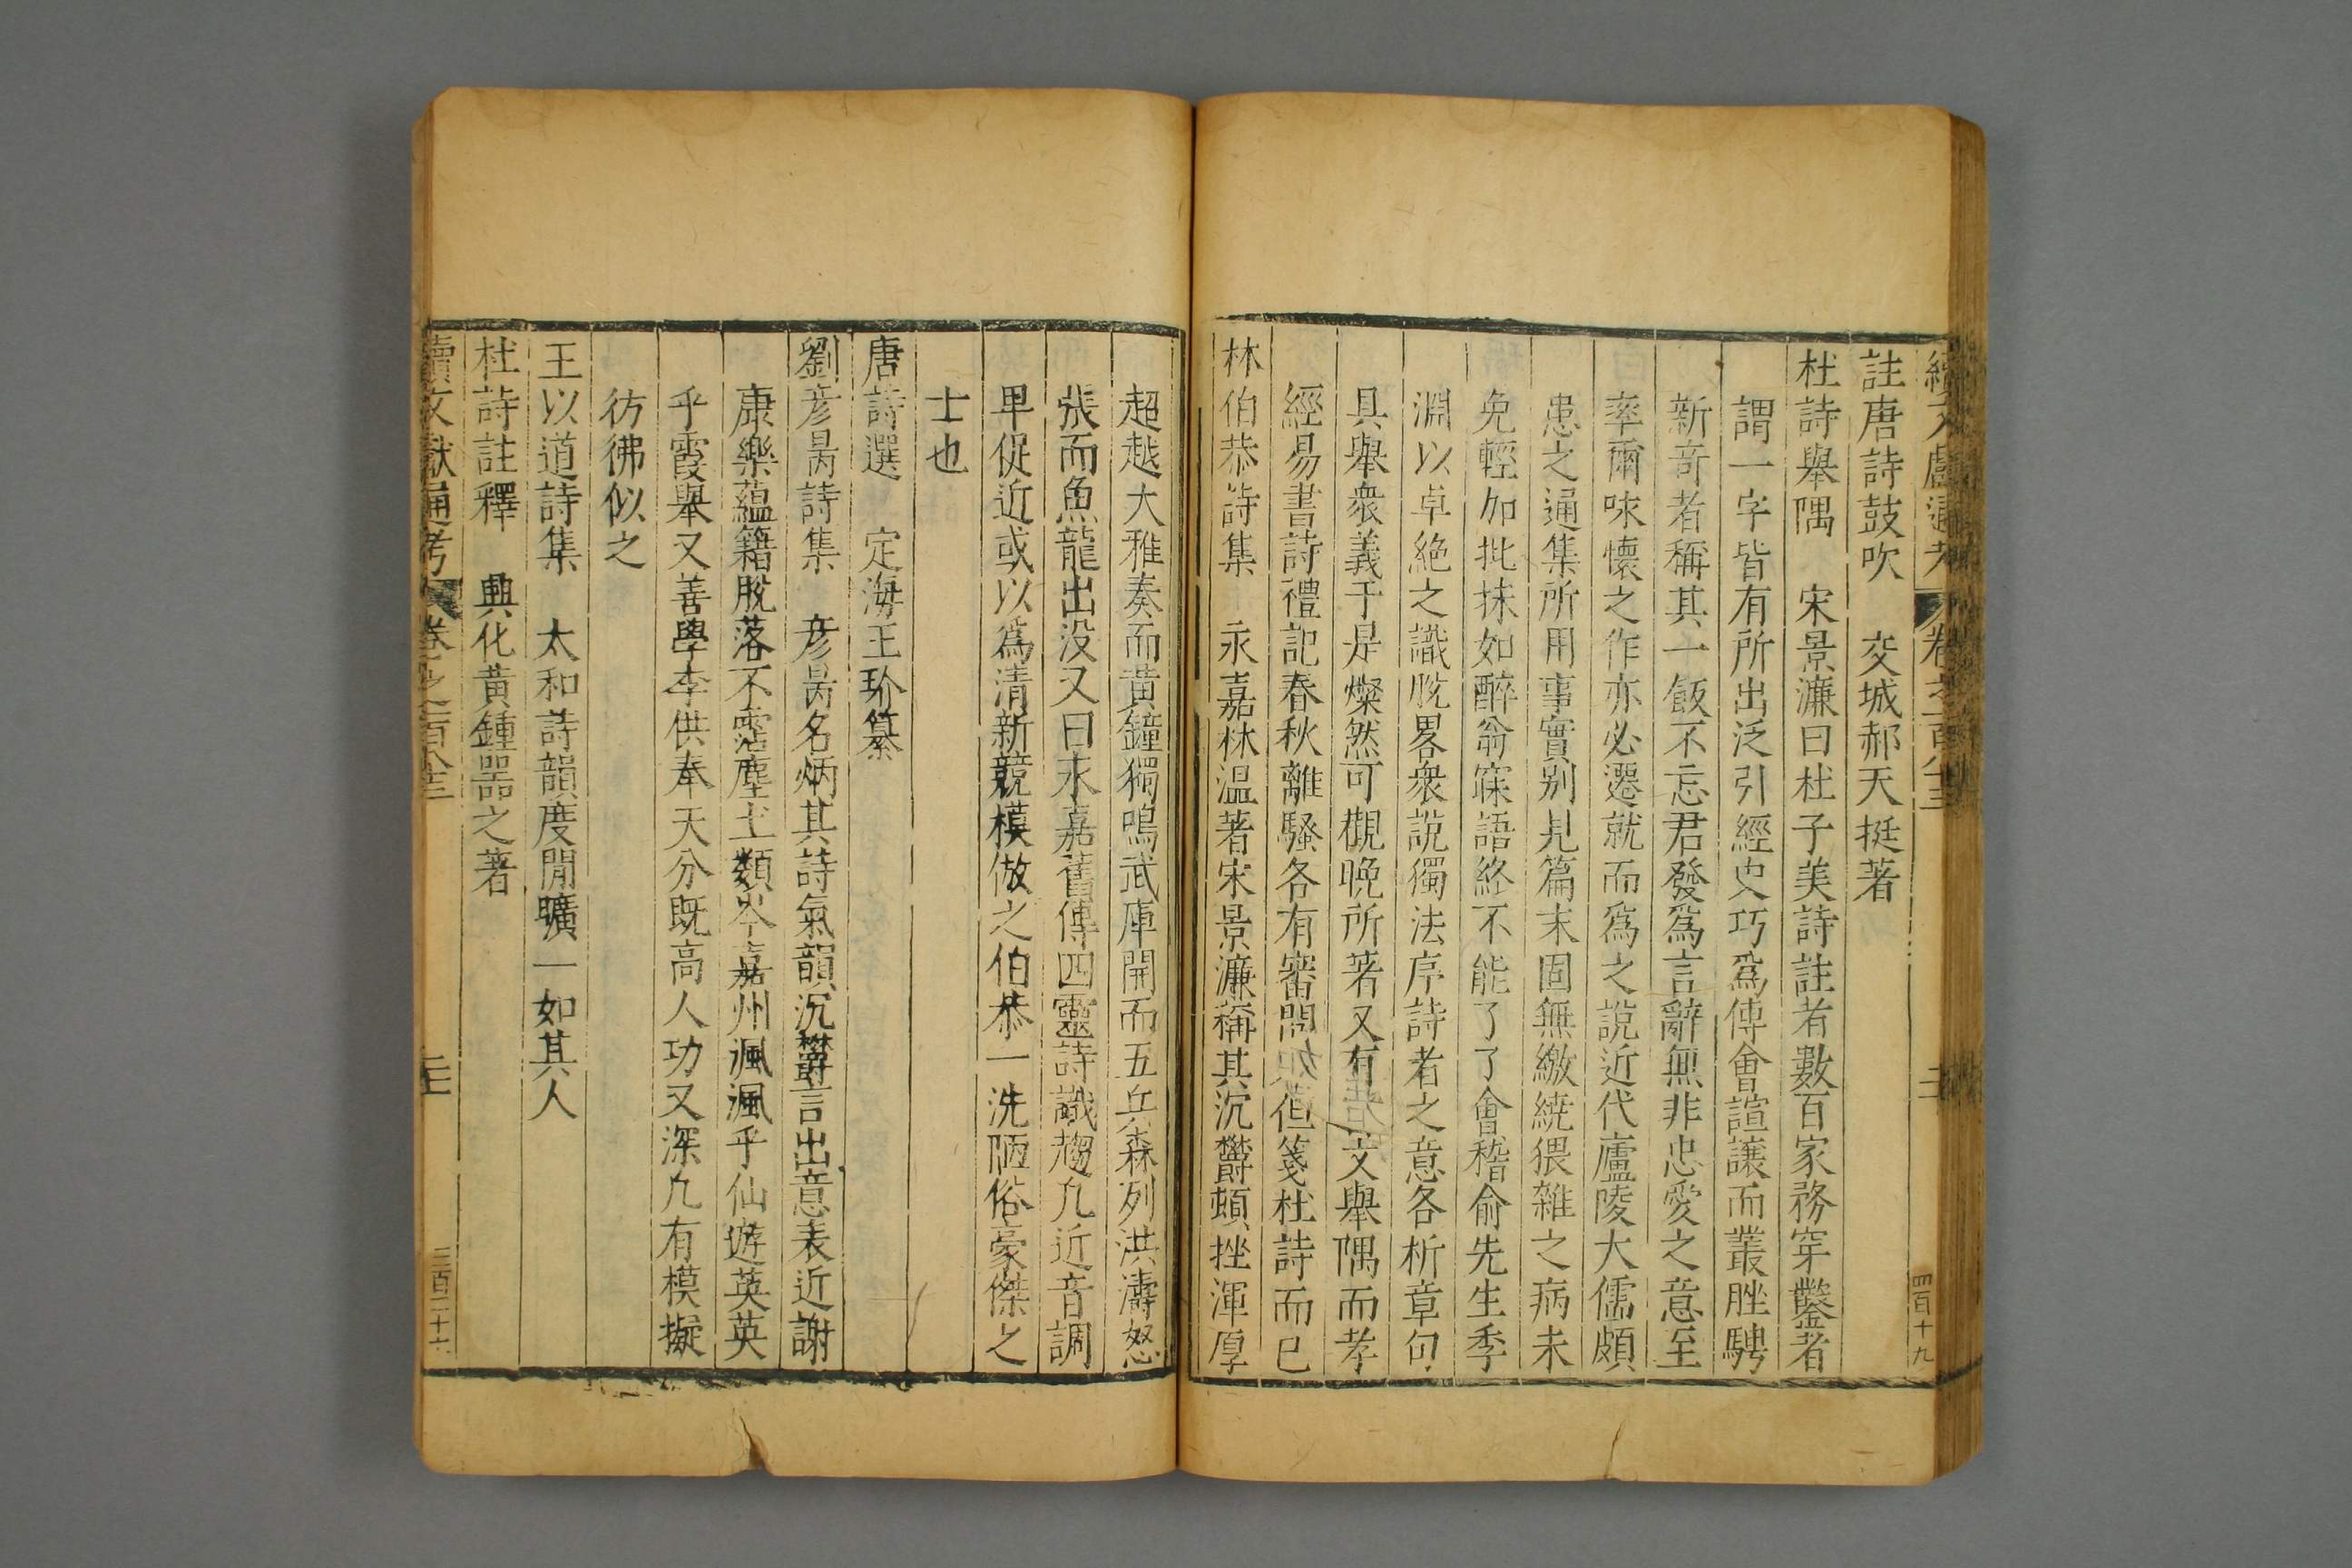 續文獻通考 卷之一百八十三 二 四百十九
註唐詩鼓吹 交城郝天挺著
杜詩舉隅 宋景濂曰杜子美詩註者數百家務穿鑿者
謂一字皆有所出泛引經史巧爲傅會諠譲而叢脞騁
新奇者稱其一飯不忘君發爲言辭無非忠愛之意至
率爾咏懷之作亦必遷就而爲之說近代廬陵大儒頗
患之通集所用事實别見篇末固無繳繞猥雜之病未
免輕加批抹如醉翁寐語終不能了了會稽俞先生季
淵以卓絶之識脫畧衆說獨法序詩者之意各析章句
具舉衆義于是燦然可觀晩所著又有 文舉隅而孝
經易書詩禮記春秋離騷各有審問 但箋杜詩而已
林伯恭詩集 永嘉林温著宋景濂稱其沉鬱頓挫渾厚
超越大雅奏而黄鐘獨鳴武庫開而五兵森列洪濤怒
張而魚龍出没又曰永嘉舊傳四靈詩識趨凡近音調
卑促近或以爲清新競模倣之伯恭一洗陋俗豪傑之
士也
唐詩選 定海王玠纂
劉彦昺詩集 彦昺名炳其詩氣韻沉鬱言出意表近謝
康樂蘊籍脫落不霑塵土類岑嘉州渢渢乎仙遊英英
乎霞舉又善學李供奉天分既高人功又深凢有模擬
彷彿似之
王以道詩集 太和詩韻度閒曠一如其人
杜詩註釋 興化黄鍾器之著
續文獻通考 卷之一百八十三 二 三百二十六